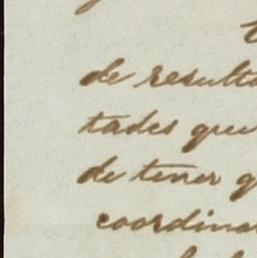 de result
tades que
de tener q
coordina